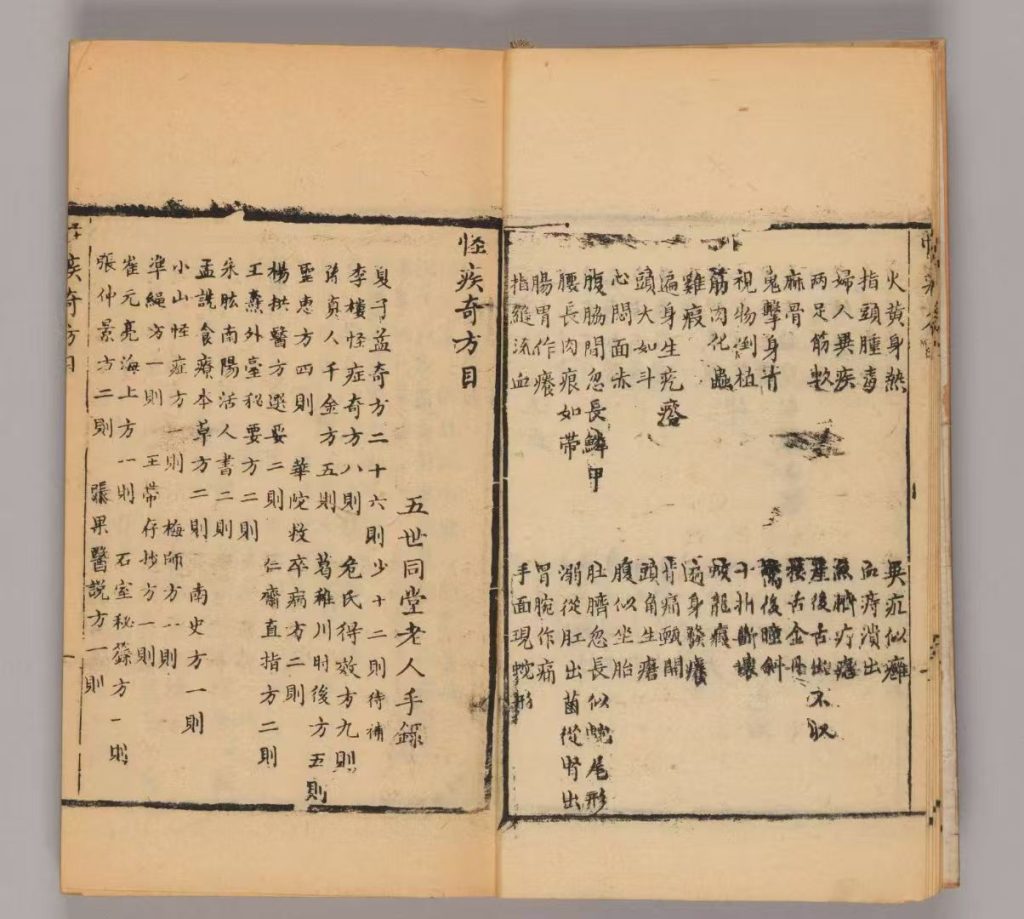 火黃身熱
指頭腫毒 血痔潰出
婦人異疾
两足筋 產後舌出不収
麻骨 接舌金丹
鬼擊身青 後瞳斜
視物倒植
筋肉化蟲 龍瘕
雞瘕 遍身發癢
遍身生疙瘩 背痛 開
頭大如斗 頭角生瘡
心悶面赤 腹似坐胎
腹脇間忽長鱗甲 肚臍忽長似蛇尾形
腰長肉痕如帶 溺從肛出菌從腎出
腸胃作癢 胃腕作痛
指縫流血 手面現蛇形
怪疾奇方目
五世同堂老人手錄
夏子益奇方二十六則少十二則待補
李樓怪症奇方八則 危氏得效方九則
孫真人千金方五則 葛稚川肘後方五則
聖惠方四則 華陀救卒病方二則
楊拱醫方選要二則 仁齋直指方二則
王燾外臺秘要方二則
朱肱南陽活人書二則
孟詵食療本草方二則 南史方一則
小山怪症方一則 梅師方一則
準繩方一則 王帶存抄方一則
崔元亮海上方一則 石室秘籙方一則
張仲景方二則 張果醫説方一則
疾奇方目